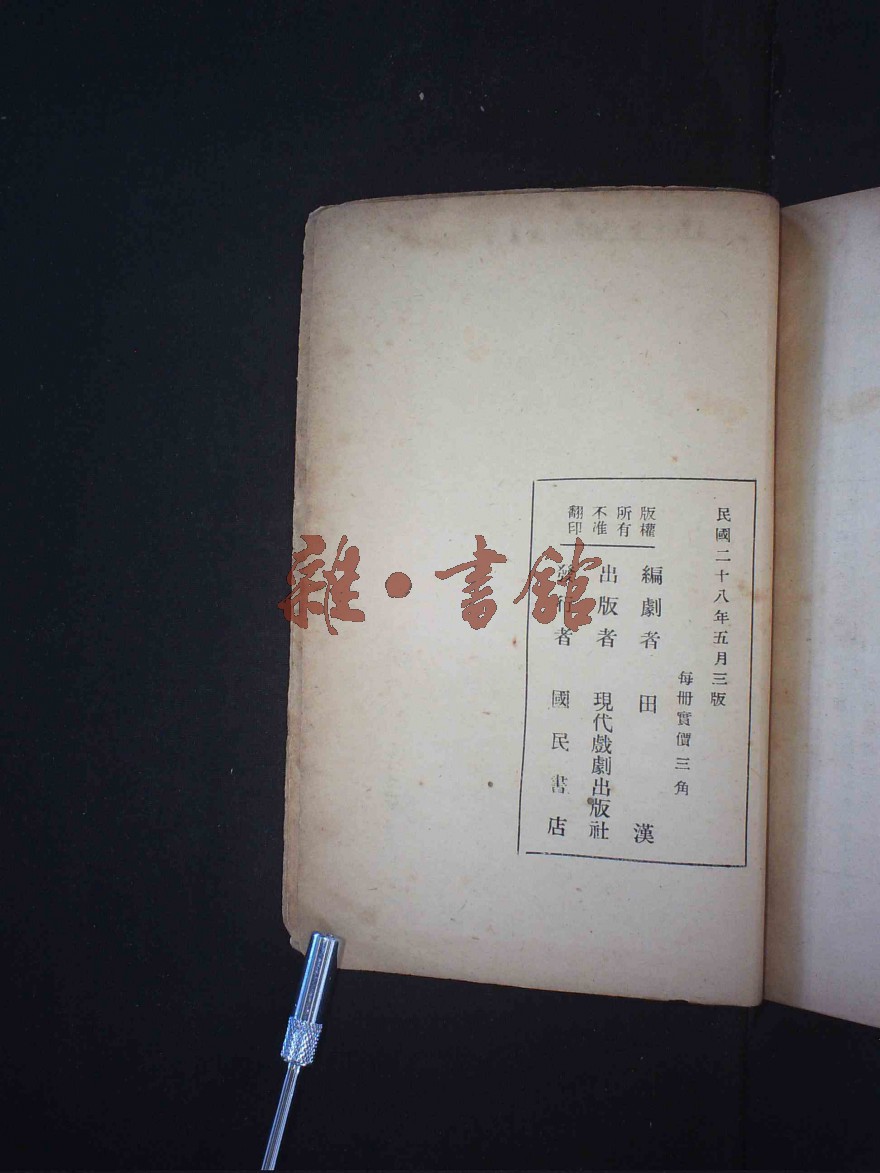 民國二十八年五月三版
每冊實價三角
版權
所有
不准
翻印
編劇者 田漢
出版者 現代戲劇出版社
發行者 國民書店
雜·書館